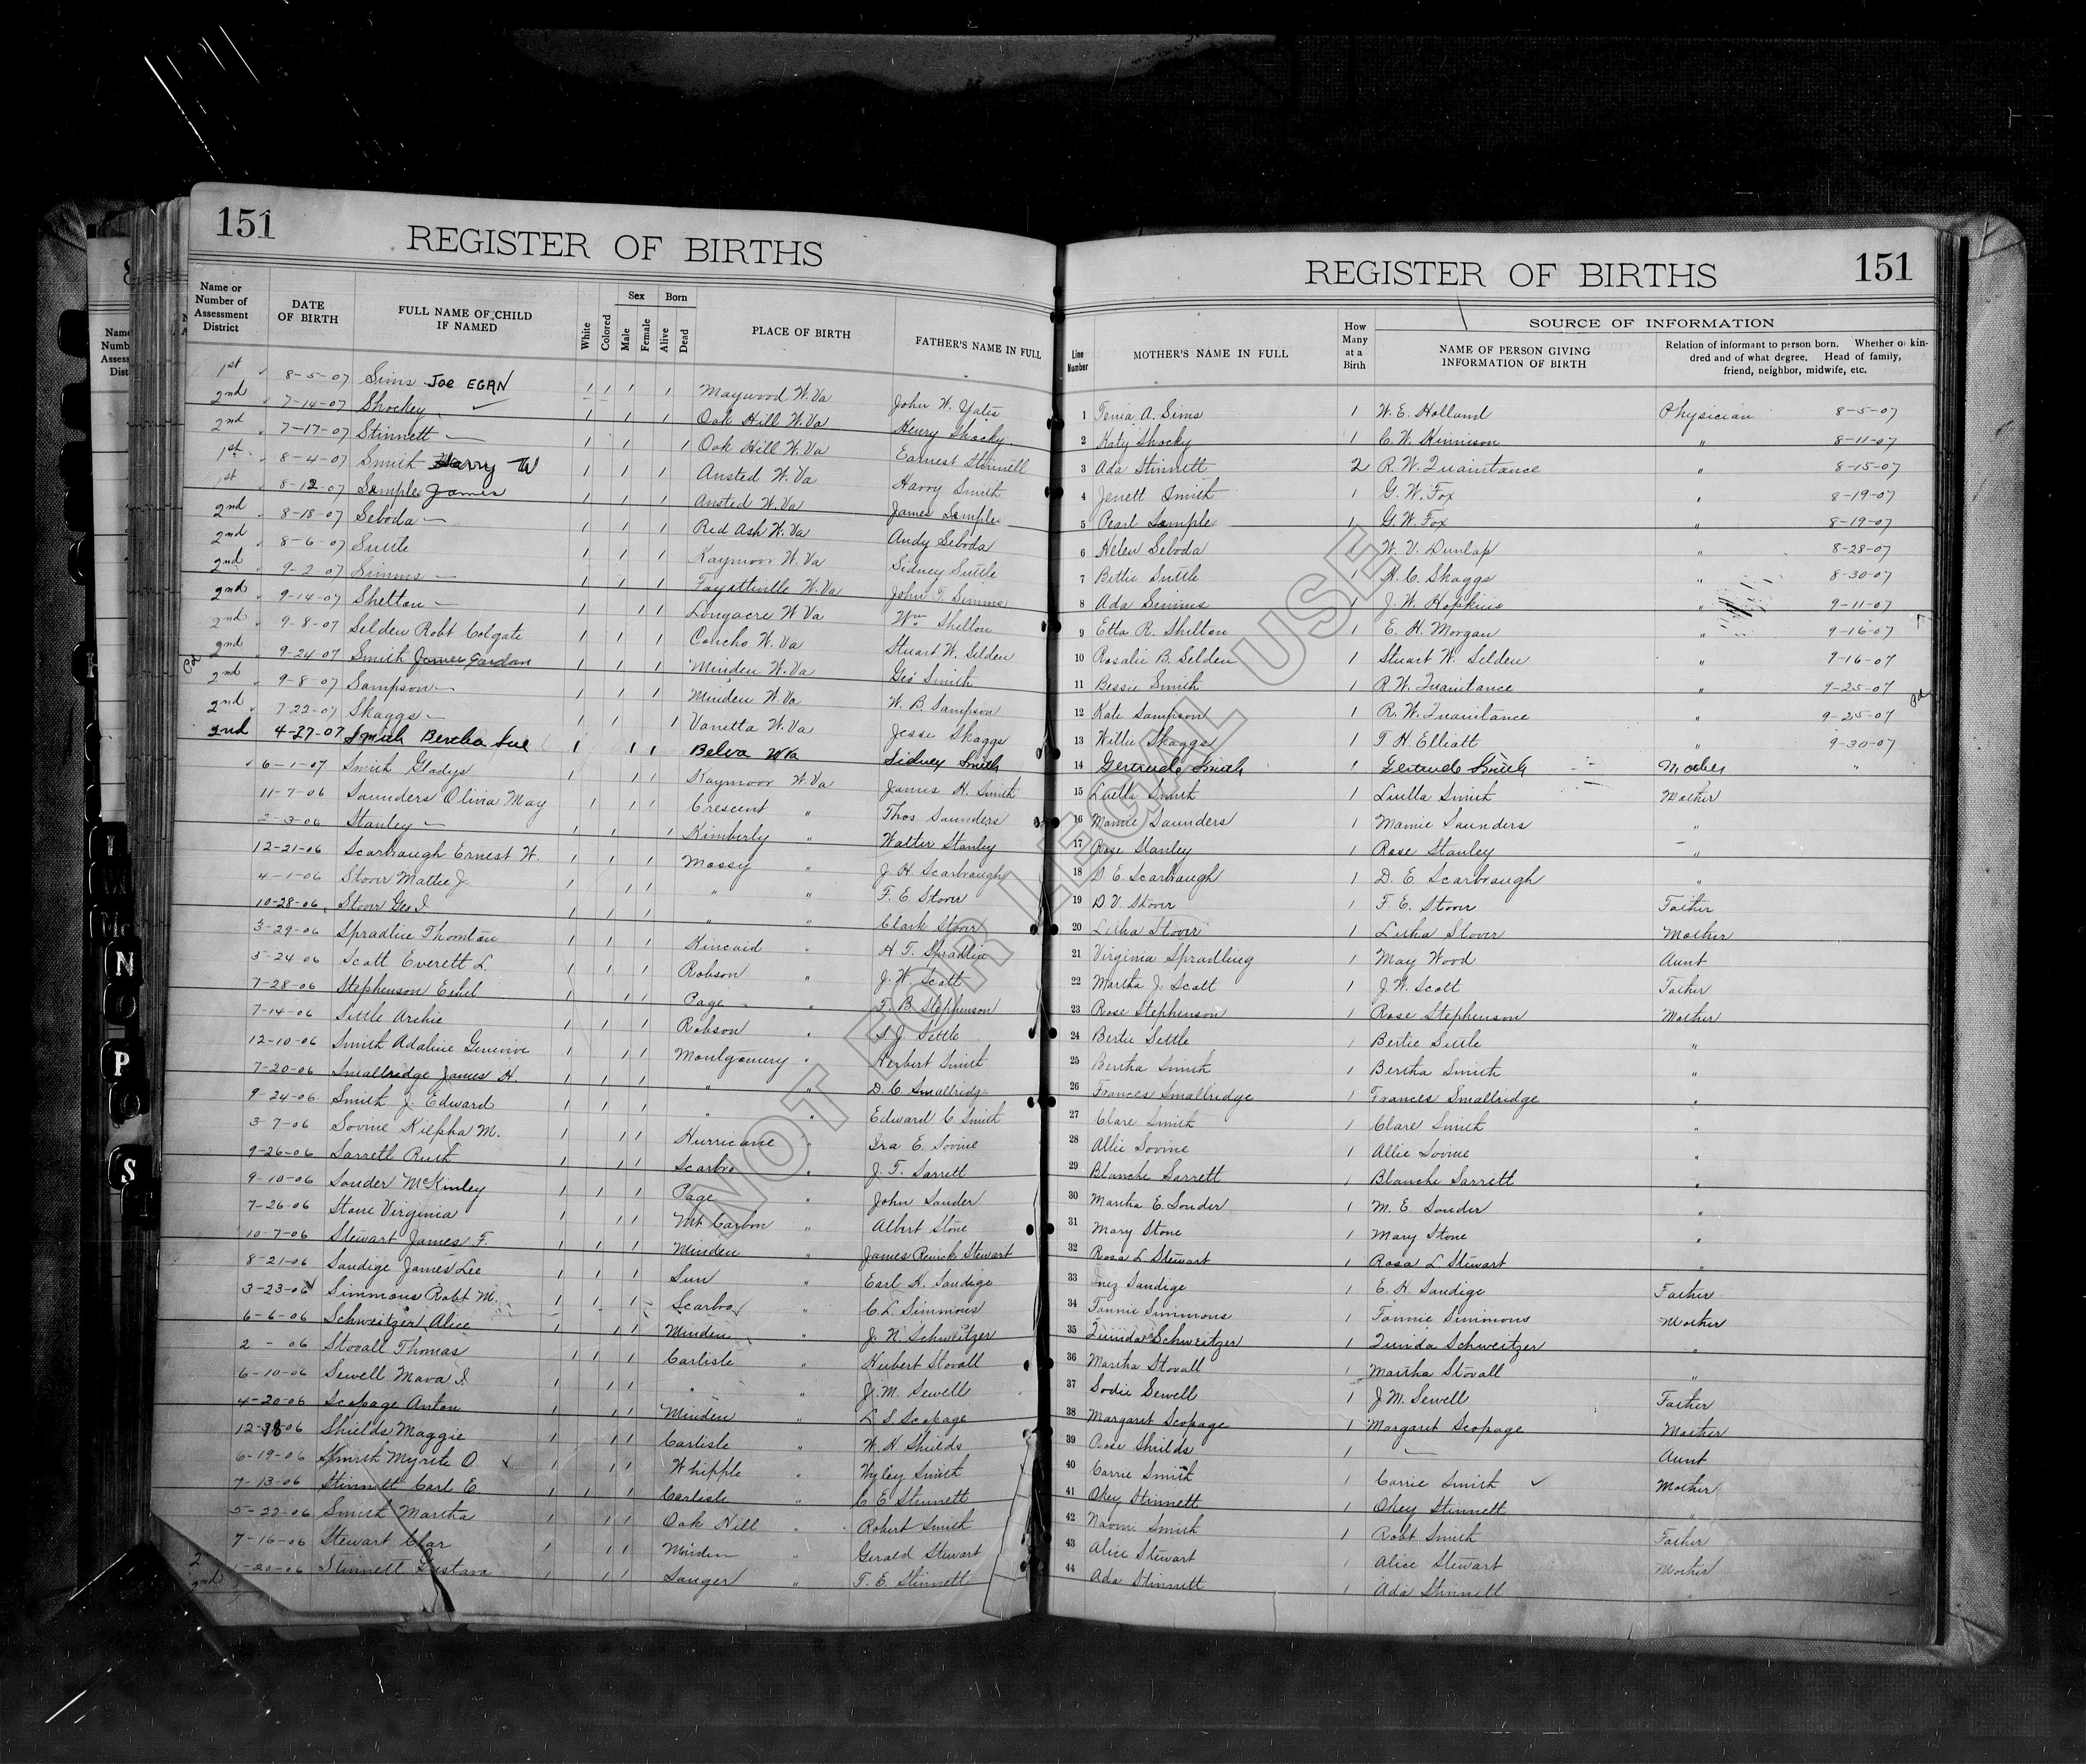 151
REGISTER OF BIRTHS
Name or Number of Assessment District | DATE OF BIRTH | FULL NAME OF CHILD IF NAMED | White | Colored | Sex Male Female | Born Alive Dead | PLACE OF BIRTH | FATHER'S NAME IN FULL
1st 8-5-07 Sims Joe EGAN Maywood W.Va John W. Yates
2nd 7-14-07 Shockey Oak Hill W.Va Henry Shocky
2nd 7-17-07 Stinnett — Oak Hill W.Va Earnest Stinnett
1st 8-4-07 Smith Harry W Ansted W.Va Harry Smith
1st 8-12-07 Samples James Ansted W.Va James Sample
2nd 8-18-07 Seboda — Red Ash W.Va Andy Seboda
2nd 8-6-07 Suttle Kaymoor W.Va Sidney Suttle
2nd 9-2-07 Simms — Fayetteville W.Va John T. Simms
2nd 9-14-07 Shelton — Longacre W Va Wm Shelton
2nd 9-8-07 Selden Robt Colgate Concho W.Va Stuart W. Selden
Col 2nd 9-24-07 Smith James Gordon Minden W.Va Geo Smith
2nd 9-8-07 Sampson — Minden W.Va W. B. Sampson
2nd 7-22-07 Skaggs — Vanetta W.Va Jesse Skaggs
2nd 4-27-07 Smith Bertha Sue Belva W Va Sidney Smith
6-1-07 Smith Gladys Kaymoor W.Va James H. Smith
11-7-06 Saunders Olivia May Crescent " Thos Saunders
2-3-06 Stanley — Kimberly " Walter Stanley
12-21-06 Scarbraugh Ernest W. Mossy " J H Scarbraugh
4-1-06 Stover Mattie J. " " F. E Stover
10-28-06 Stover Geo I. " " Clark Stover
3-29-06 Spradlin Thornton Kincaid " H T. Spradlin
5-24-06 Scott Everett L. Robson " J. W. Scott
7-28-06 Stephenson Ethel Page " F. B. Stephenson
7-14-06 Settle Archie Robson " S J Settle
12-10-06 Smith Adaline Genevive Montgomery " Herbert Smith
7-20-06 Smallridge James H. " " D. C. Smallridge
9-24-06 Smith J. Edward " " Edward C Smith
3-7-06 Sovine Kiepha M. Hurricane " Ira E. Sovine
9-26-06 Sarrett Ruth Scarbro " J. T. Sarrett
9-10-06 Souder McKinley Page " John Souder
7-26-06 Stone Virginia Mt Carbon " Albert Stone
10-7-06 Stewart James F. Minden James Renick Stewart
8-21-06 Sandige James Lee Sun " Earl H. Sandige
3-23-06 Simmons Robt M. Scarbro C. L. Simmons
6-6-06 Schweitzer Alice Minden " J. N. Schweitzer
2 - 06 Stovall Thomas Carlisle " Hubert Stovall
6-10-06 Sewell Mava I. " " J. M. Sewell
4-20-06 Scopage Anton Minden " L S Scopage
12-18-06 Shields Maggie Carlisle W. H Shields
6-19-06 Smith Myrtle O. x Whipple " Wyley Smith
7-13-06 Stinnett Carl E. Carlisle " C E Stinnett
5-22-06 Smith Martha Oak Hill " Robert Smith
7-16-06 Stewart Clar Minden " Gerald Stewart
-20-06 Stinnett Gustava Sanger " T. E. Stinnett
2nd
151
REGISTER OF BIRTHS
Line Number | MOTHER'S NAME IN FULL | How Many at a Birth | SOURCE OF INFORMATION
NAME OF PERSON GIVING INFORMATION OF BIRTH | Relation of informant to person born. Whether or kindred and of what degree. Head of family, friend, neighbor, midwife, etc.
1 Tenia A. Sims 1 W. E. Holland Physician 8-5-07
2 Katy Shocky 1 C. W. Kinnison " 8-11-07
3 Ada Stinnett 2 R. W. Quaintance " 8-15-07
4 Jenett Smith 1 G. W. Fox " 8-19-07
5 Pearl Sample 1 G. W. Fox " 8-19-07
6 Helen Seboda W. V. Dunlap " 8-28-07
7 Bettie Suttle 1 H. C. Skaggs " 8-30-07
8 Ada Simms 1 J. W. Hopkins " 9-11-07
9 Etta R. Shelton 1 E. H. Morgan " 9-16-07
10 Rosalie B. Selden 1 Stuart W. Selden " 9-16-07
11 Bessie Smith 1 R. W. Quaintance " 9-25-07
12 Kate Sampson 1 R. W. Quaintance " 9-25-07
13 Willie Skaggs 1 T. H. Elliott " 9-30-07
14 Gertrude Smith 1 Gertrude Smith Mother "
15 Luella Smith 1 Luella Smith Mother
16 Mamie Saunders 1 Mamie Saunders "
17 Rose Stanley 1 Rose Stanley "
18 D. E. Scarbraugh 1 D. E. Scarbraugh "
19 D V. Stover 1 F. E. Stover Father
20 Letha Stover 1 Letha Stover Mother
21 Virginia Spradling 1 May Wood Aunt
22 Martha J. Scott 1 J. W. Scott Father
23 Rose Stephenson 1 Rose Stephenson Mother
24 Bertie Settle 1 Bertie Settle "
25 Bertha Smith 1 Bertha Smith "
26 Frances Smallridge 1 Frances Smallridge "
27 Clare Smith 1 Clare Smith "
28 Allie Sovine 1 Allie Sovine "
29 Blanche Sarrett 1 Blanche Sarrett "
30 Martha E. Souder 1 M. E. Souder "
31 Mary Stone 1 Mary Stone "
32 Rosa L Stewart 1 Rosa L Stewart "
33 Inez Sandige 1 E. H. Sandige Father
34 Fannie Simmons 1 Fannie Simmons Mother
35 Schweitzer 1 Schweitzer "
36 Martha Stovall 1 Martha Stovall "
37 Sodie Sewell 1 J M. Sewell Father
38 Margaret Scopage 1 Margaret Scopage Mother
39 Rose Shields 1 — Aunt
40 Carrie Smith 1 Carrie Smith ✓ Mother
41 Okey Stinnett 1 Okey Stinnett "
42 Naomi Smith 1 Robt Smith Father
43 Alice Stewart 1 Alice Stewart Mother
44 Ada Stinnett 1 Ada Stinnett "
NOT FOR LEGAL USE
N
O
P
S